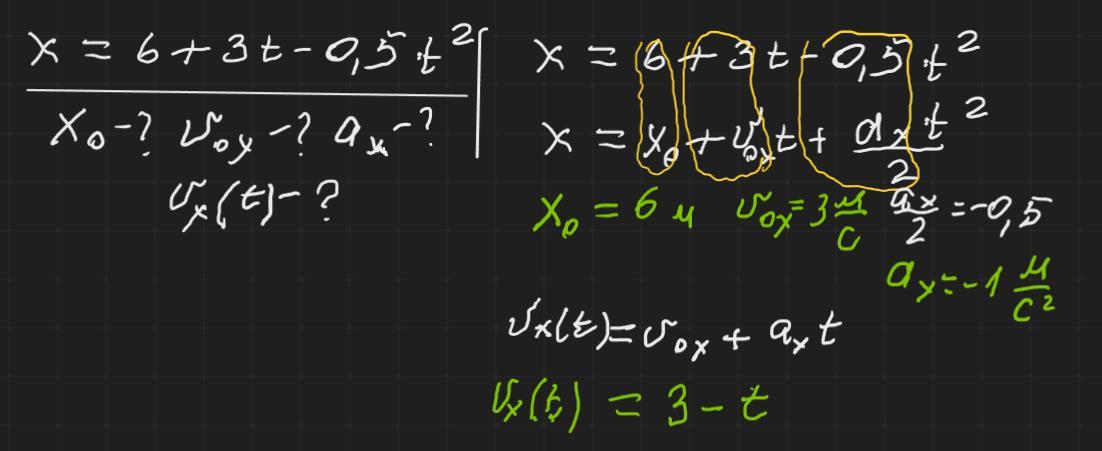 x = 6 + 3t - 0,5·t²
x₀ - ? υ₀ₓ - ? aₓ - ?
υₓ(t) - ?
x = 6 + 3t - 0,5·t²
x = x₀ + υ₀ₓt + aₓt²/2
x₀ = 6 м υ₀ₓ = 3 м/с aₓ/2 = -0,5
aₓ = -1 м/с²
υₓ(t) = υ₀ₓ + aₓt
υₓ(t) = 3 - t